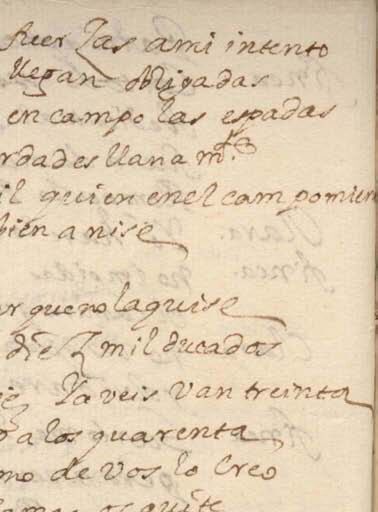 fuerças a mi intento
llegan obligadas
en campo las espadas
rdades llana mte
il quien en el campo mien
bien a nise
ar que no la quise
diez mil ducados
ya veis van treinta
a los quarenta
mo de vos lo creo
os quite